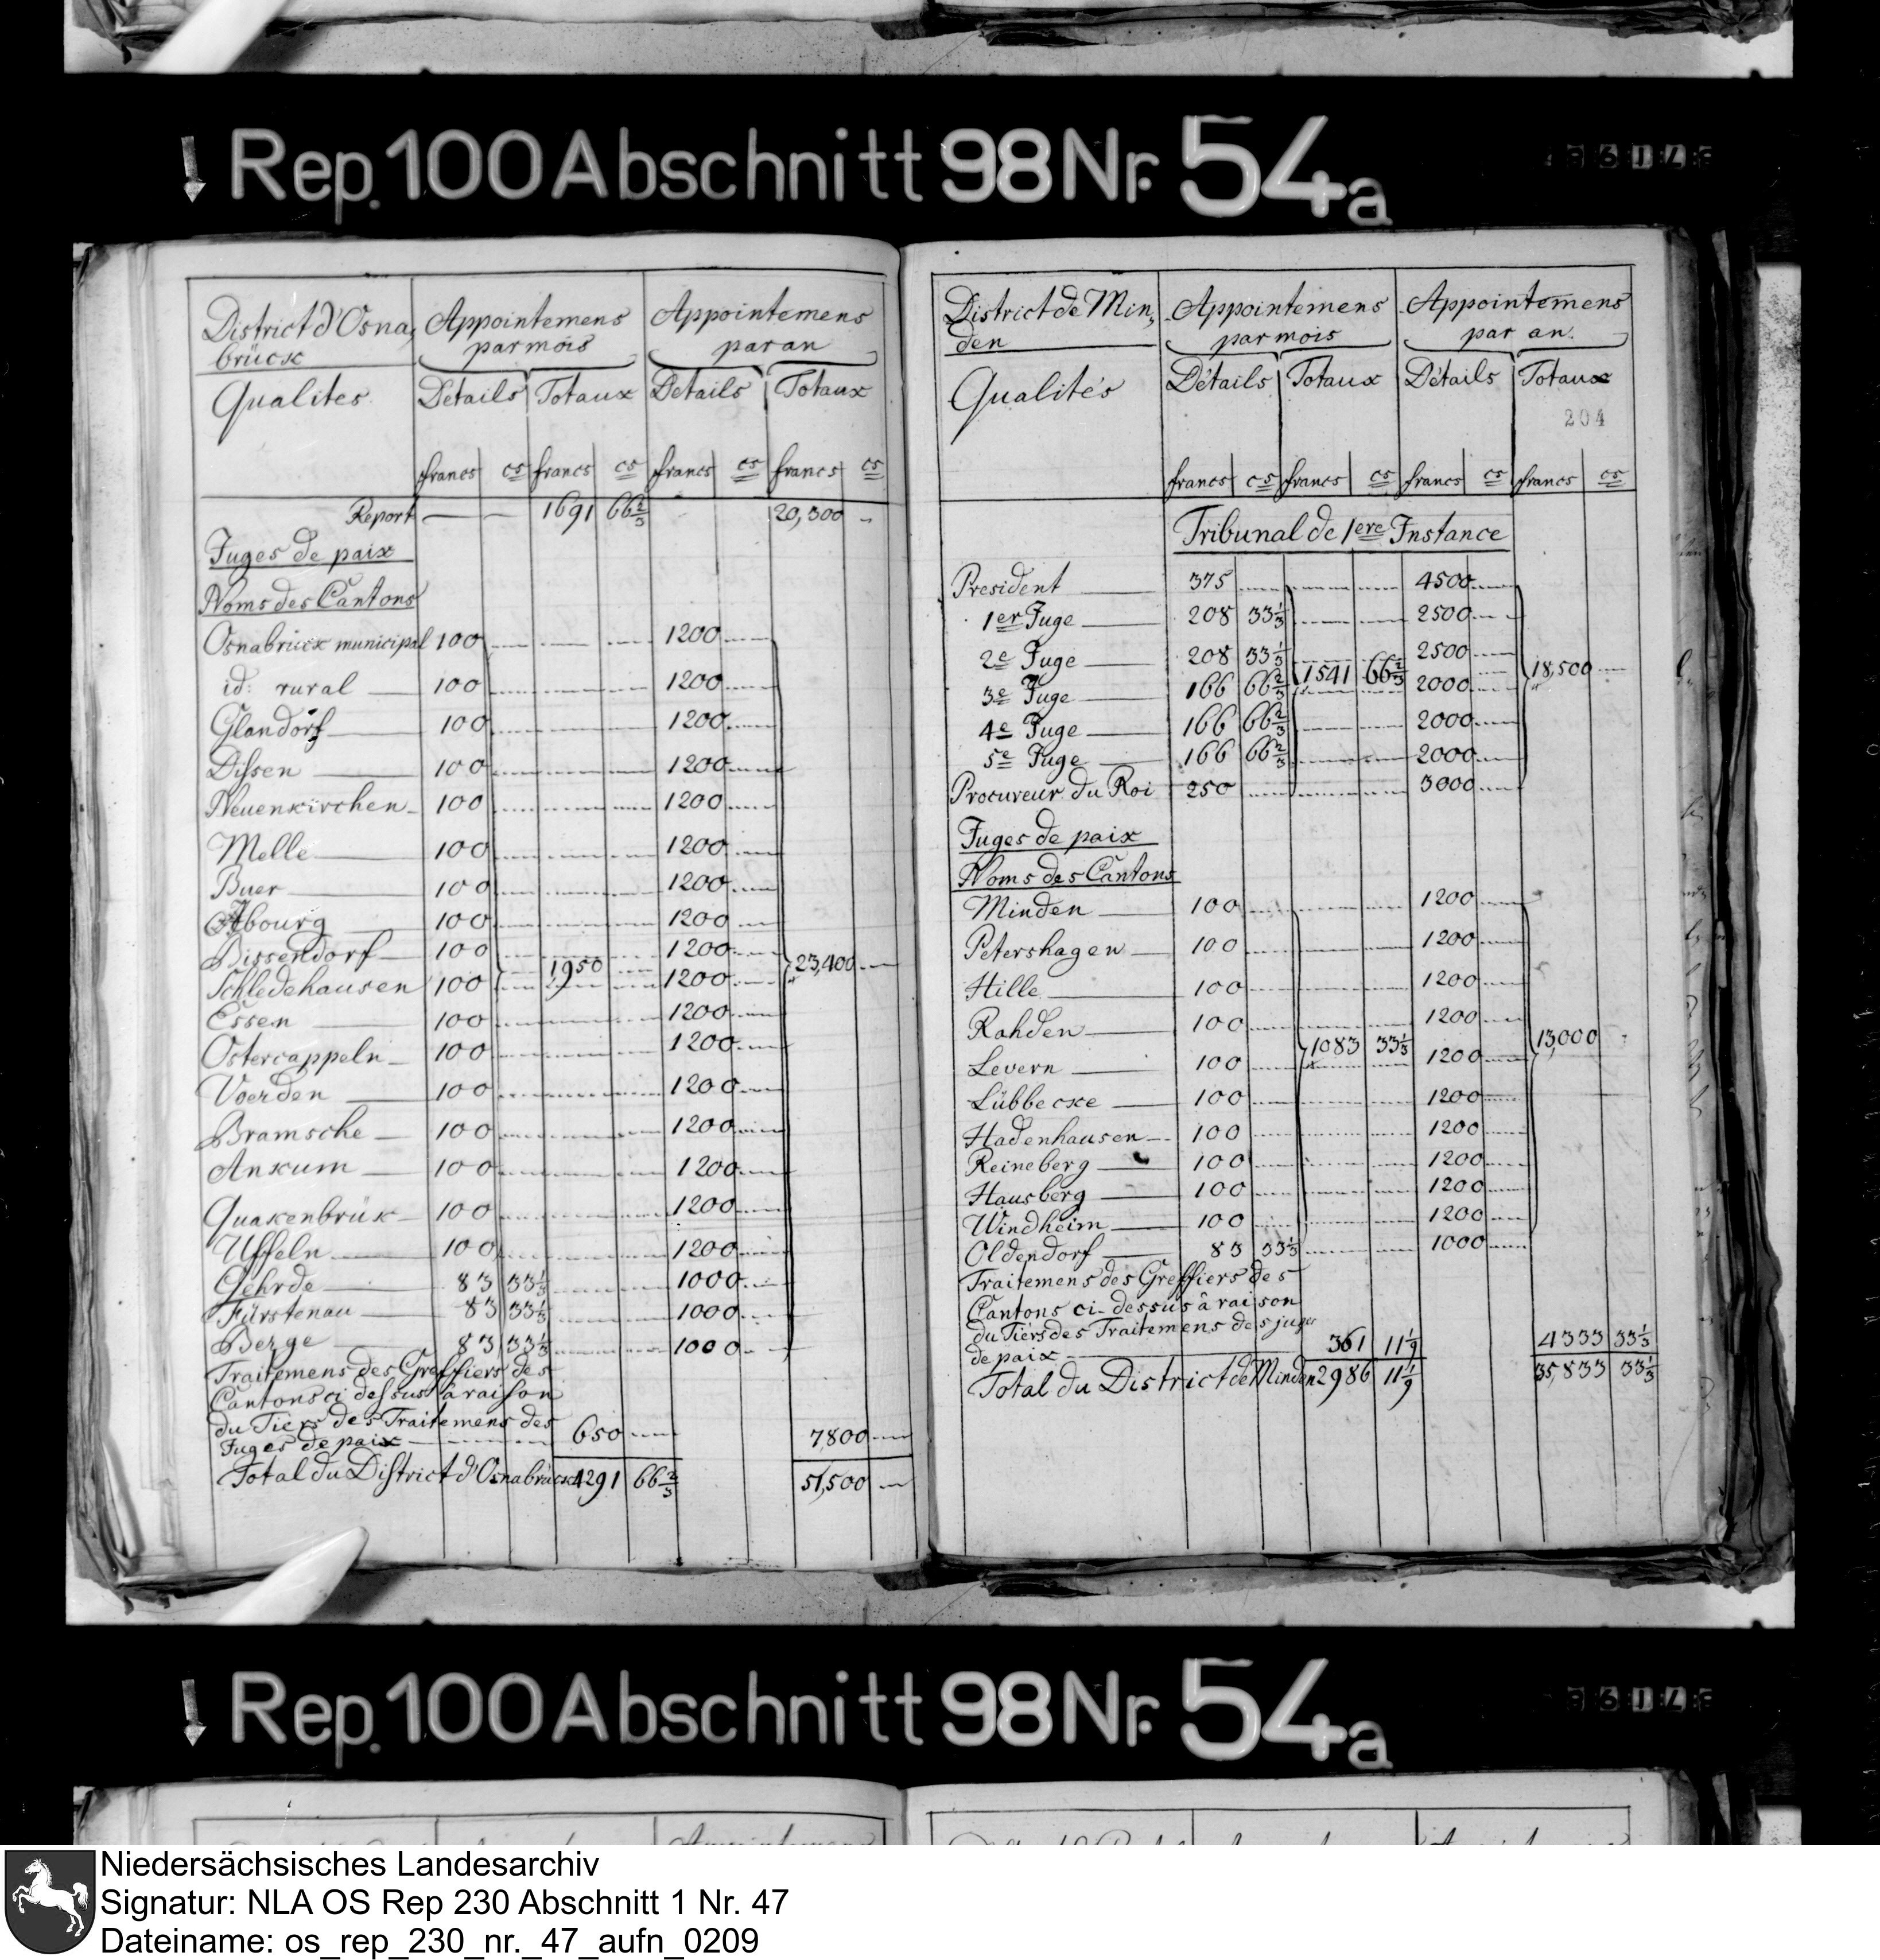 Rep. 100 Abschnitt 98 Nr. 54a
District d'Osna,
brück
Appointemens
par mois
Appointemens
par an
Qualites
Details Totaux Details Totaux
francs cs francs cs francs cs francs cs
Report 1691 66 2/3 20,300
Juges de paix
Noms des Cantons
Osnabrück municipal 100 1200
id: rural 100 1200
Glandorf 100 1200
Dissen 100 1200
Neuenkirchen 100 1200
Melle 100 1200
Buer 100 1200
Ibourg 100 1200
Bissendorf 100 1200
1950 23,400
Schledehausen 100 1200
Essen 100 1200
Ostercappeln 100 1200
Voerden 100 1200
Bramsche 100 1200
Ankum 100 1200
Quakenbrük 100 1200
Uffeln 100 1200
Gehrde 83 33 1/3 1000
Fürstenau 83 33 1/3 1000
Berge 83 33 1/3 1000
Traitemens des Greffiers des
Cantons ci dessus à raison
du Tiers des Traitemens des
Juges de paix 650 7,800
Total du District d'Osnabrück 4291 66 2/3 51,500
District de Min,
den
Appointemens
par mois
Appointemens
par an.
Qualités
Détails Totaux Détails Totaux
204
francs cs francs cs francs cs francs cs
Tribunal de 1ere Instance
President 375 4500
1er Juge 208 33 1/3 2500
2e Juge 208 33 1/3 2500
1541 66 2/3 18,500
3e Juge 166 66 2/3 2000
4e Juge 166 66 2/3 2000
5e Juge 166 66 2/3 2000
Procureur du Roi 250 3000
Juges de paix
Noms des Cantons
Minden 100 1200
Petershagen 100 1200
Hille 100 1200
Rahden 100 1200
1083 33 1/3 13,000
Levern 100 1200
Lübbecke 100 1200
Hadenhausen 100 1200
Reineberg 100 1200
Hausberg 100 1200
Windheim 100 1200
Oldendorf 83 33 1/3 1000
Traitemens des Greffiers des
Cantons ci-dessus à raison
du Tiers des Traitemens des juges
de paix 361 11 1/9 4333 33 1/3
Total du District de Minden 2986 11 1/9 35,833 33 1/3
Rep. 100 Abschnitt 98 Nr. 54a
Niedersächsisches Landesarchiv
Signatur: NLA OS Rep 230 Abschnitt 1 Nr. 47
Dateiname: os_rep_230_nr._47_aufn_0209